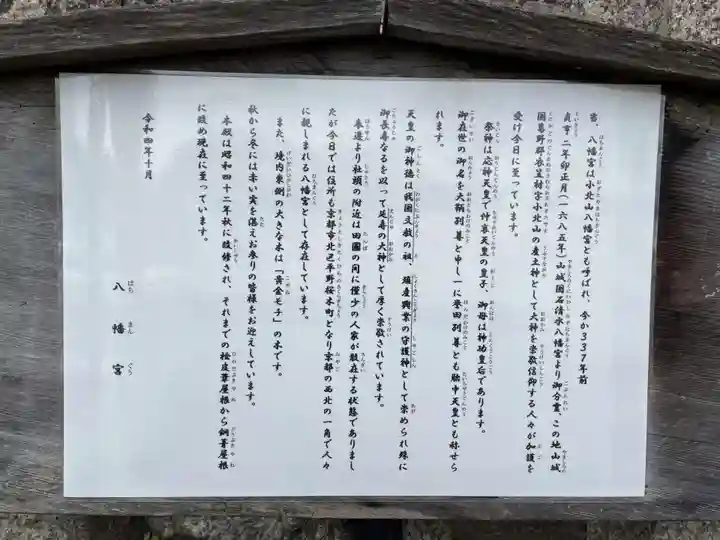 当、八幡宮は小北山八幡宮とも呼ばれ、今から337年前
貞享二年卯正月(一六八五年)山城国石清水八幡宮より御分霊、この地山城
国葛野郡衣笠村字小北山の産土神として大神を崇敬信仰する人々が加護を
受け今日に至っています。
祭神は応神天皇で仲哀天皇の皇子、御母は神功皇后であります。
御在世の御名を大鞆別尊と申し一に誉田別尊とも胎中天皇とも称せら
れます。
天皇の御神徳は我国文教の祖、殖産興業の守護神として崇められ殊に
御長寿なるを以って延寿の大神として厚く崇敬されています。
奉遷より社頭の附近は田圃の間に僅少の人家が散在する状態でありまし
たが今日では住所も京都市北区平野桜木町となり京都の西北の一角で人々
に親しまれる八幡宮として存在しています。
また、境内東側の大きな木は「黄金モチ」の木です。
秋から冬には赤い実を湛えお参りの皆様をお迎えしています。
本殿は昭和四十二年秋に改修され、それまでの桧皮葺屋根から銅葺屋根
に改め現在に至っています。
令和四年十月
八幡宮